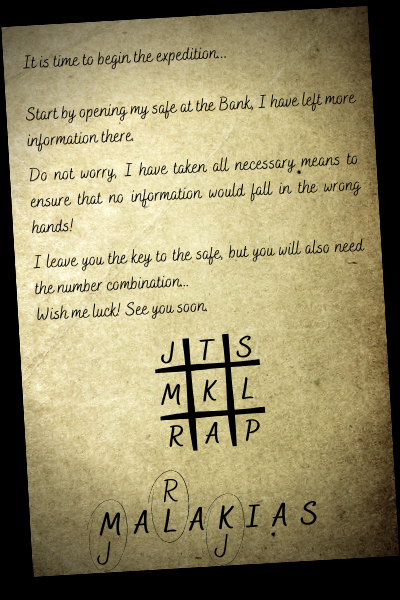 It is time to begin the expedition...
Start by opening my safe at the Bank, I have left more
information there.
Do not worry, I have taken all necessary means to
ensure that no information would fall in the wrong
hands!
I leave you the key to the safe, but you will also need
the number combination...
Wish me luck! See you soon.
J T S
M K L
R A P
R
M A L A K I A S
J J